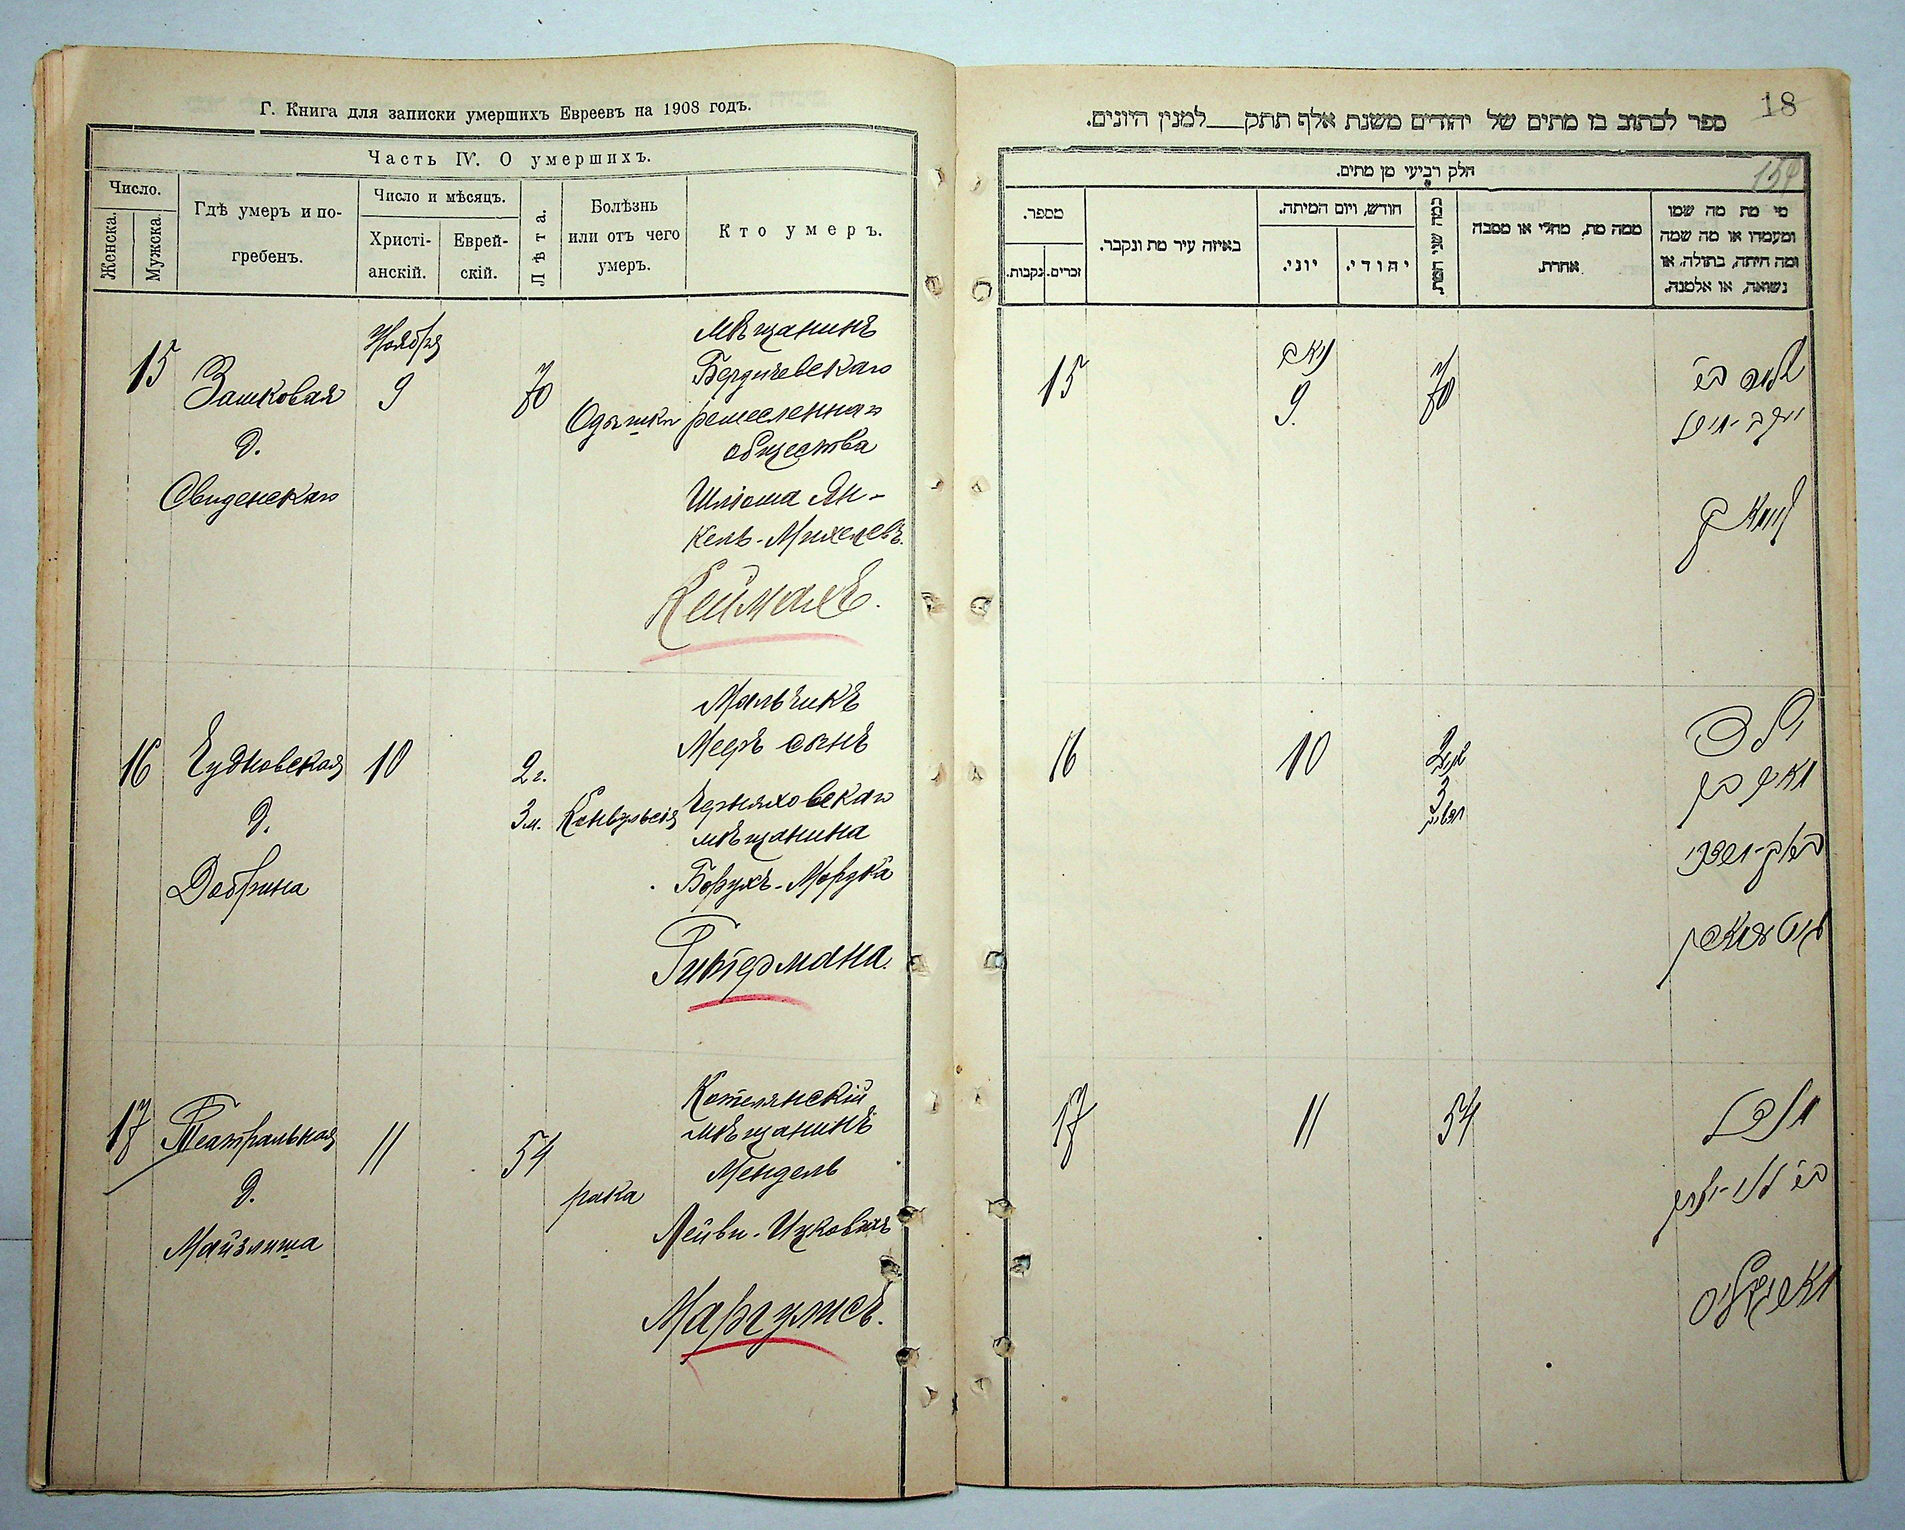 Г. Книга для записки умершихъ Евреевъ на 1908 годъ.
Часть IV. О умершихъ.
Число.
Женска.
Мужска.
Гдѣ умеръ и по-
гребенъ.
Число и мѣсяцъ.
Христі-
анскій.
Еврей-
скій.
Лѣта.
Болѣзнь
или отъ чего
умеръ.
Кто умеръ.
15
Зашковая
д.
Свиденскаго
Ноября
9
70
Одышки
мѣщанинъ
Бердичевскаго
ремесленнаго
общества
Шлиома Ян-
кель-Михелевъ
Кейманъ.
16
Чудновская
д.
Добрина
10
2 г.
3 м.
Конвульсія
Мальчикъ
Мееръ сынъ
Черняховскаго
мѣщанина
Борухъ-Мордка
Гитермана.
17
Театральная
д.
Майзлиша
11
54
рака
Котелянскій
мѣщанинъ
Мендель
Лейви-Ицковичъ
Маргулисъ.
18
ספר לכתוב בו מתים של יהודים משנת אלף תתק___למנין היונים.
חלק רביעי מן מתים.
154
מספר.
זכרים.
נקבות.
באיזה עיר מת ונקבר.
חודש, ויום המיתה.
יוני.
יהודי.
כמה שני המת.
ממה מת, מחלי או מסבה
אחרת.
מי מת מה שמו
ומעמדו או מה שמה
ומה היתה, בתולה, או
נשואה, או אלמנה.
15
9
70
16
10
2
3
ילד
מאיר בן
ברוך-מרדכי
גיטערמאן
17
11
54
מענדל
מארגוליס